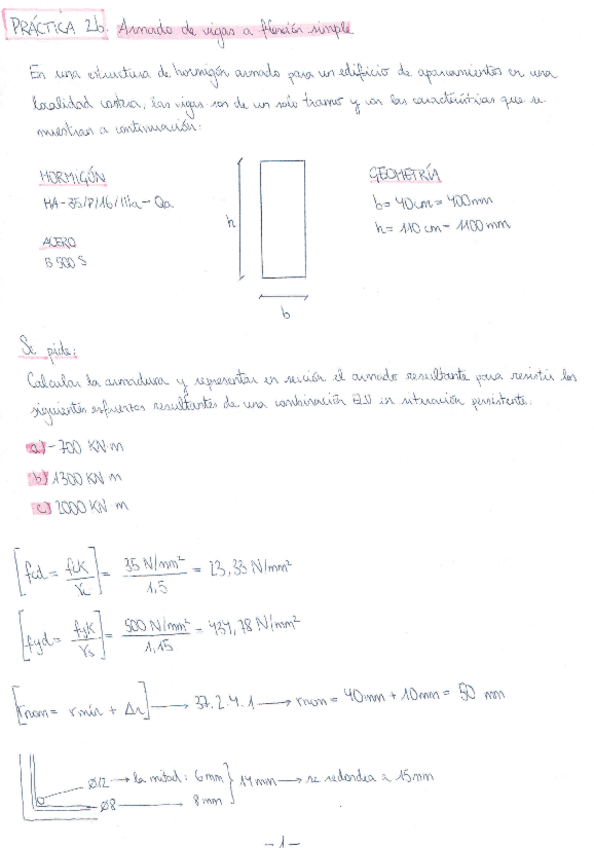 PRÁCTICA 2b. Armado de vigas a flexión simple
En una estructura de hormigón armado para un edificio de aparcamientos en una
localidad costera, las vigas son de un solo tramo y con las características que se
muestran a continuación:
HORMIGÓN
HA-35/P/16/IIIa-Qa
ACERO
B 500 S
h
b
GEOMETRÍA
b = 40 cm = 400 mm
h = 110 cm = 1100 mm
Se pide:
Calcular la armadura y representar en sección el armado resultante para resistir los
siguientes esfuerzos resultantes de una combinación ELU en situación persistente:
a) -700 KN·m
b) 1300 KN m
c) 2000 KN m
[fcd = fck/γc] = 35 N/mm²/1,5 = 23,33 N/mm²
[fyd = fyk/γs] = 500 N/mm²/1,15 = 434,78 N/mm²
[rnom = rmín + Δr] → 37.2.4.1 → rnom = 40 mm + 10 mm = 50 mm
Ø12 → la mitad: 6 mm
Ø8 → 8 mm
} 14 mm → se redondea a 15 mm
-1-